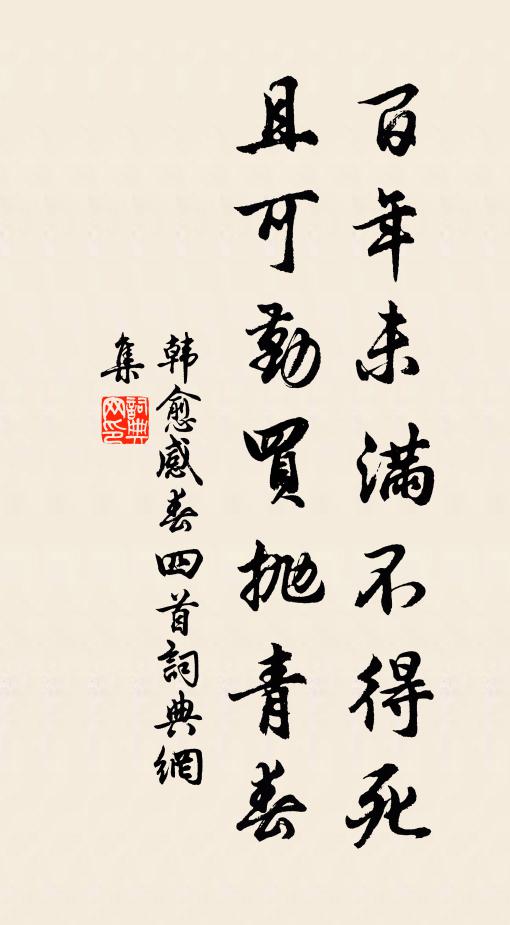 百年未滿不得死
且可勤買抛青春
韩愈感春四首詞典網
集
詞典
网印